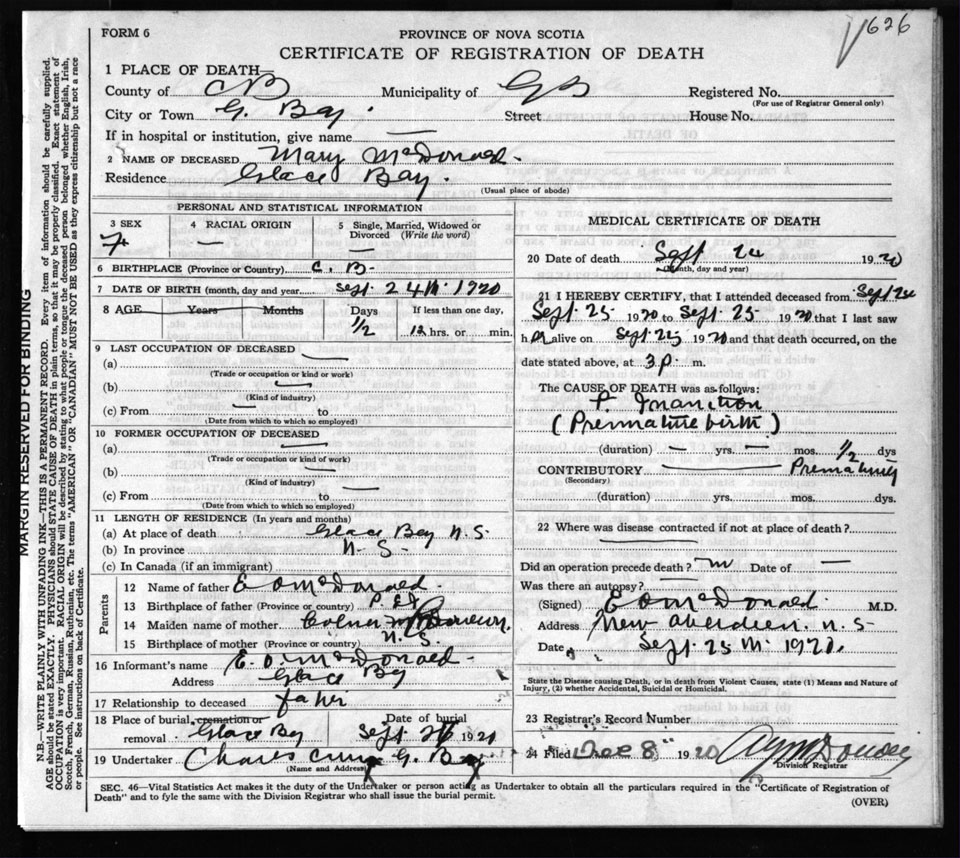 FORM 6
PROVINCE OF NOVA SCOTIA
626
CERTIFICATE OF REGISTRATION OF DEATH
1 PLACE OF DEATH—
County of CB Municipality of GB Registered No.
(For use of Registrar General only)
City or Town G. Bay. Street House No.
If in hospital or institution, give name —
2 NAME OF DECEASED Mary McDonald.
Residence Glace Bay.
(Usual place of abode)
PERSONAL AND STATISTICAL INFORMATION
3 SEX 4 RACIAL ORIGIN 5 Single, Married, Widowed or
Divorced (Write the word)
F —
6 BIRTHPLACE (Province or Country) C. B.
7 DATE OF BIRTH (month, day and year) Sept. 24th 1920
8 AGE Years Months Days If less than one day,
1/2 12 hrs. or min.
9 LAST OCCUPATION OF DECEASED
(a) —
(Trade or occupation or kind of work)
(b) —
(Kind of industry)
(c) From — to
(Date from which to which so employed)
10 FORMER OCCUPATION OF DECEASED
(a) —
(Trade or occupation or kind of work)
(b) —
(Kind of industry)
(c) From — to
(Date from which to which so employed)
11 LENGTH OF RESIDENCE (In years and months)
(a) At place of death Glace Bay N.S.
(b) In province N. S.
(c) In Canada (if an immigrant)
Parents
12 Name of father E O McDonald.
13 Birthplace of father (Province or country) P.E.I.
14 Maiden name of mother
15 Birthplace of mother (Province or country) N.S.
16 Informant's name E. O. McDonald
Address Glace Bay
17 Relationship to deceased father
18 Place of burial, cremation or Date of burial
removal Glace Bay Sept 26 1920
19 Undertaker Charles G. Bay
(Name and Address)
MEDICAL CERTIFICATE OF DEATH
20 Date of death Sept 24 1920
(Month, day and year)
21 I HEREBY CERTIFY, that I attended deceased from Sept 24
Sept 25 1920 to Sept 25 1920 that I last saw
her alive on Sept 25 1920 and that death occurred, on the
date stated above, at 3 p. m.
The CAUSE OF DEATH was as follows:
Inanition
(Premature birth)
(duration) — yrs. — mos. 1/2 dys
CONTRIBUTORY Prematurity
(Secondary)
(duration) yrs. mos. dys.
22 Where was disease contracted if not at place of death?
Did an operation precede death? no Date of —
Was there an autopsy? —
(Signed) E O McDonald M.D.
Address New Aberdeen. N.S.
Date Sept. 25th 1920.
State the Disease causing Death, or in death from Violent Causes, state (1) Means and Nature of
Injury, (2) whether Accidental, Suicidal or Homicidal.
23 Registrar's Record Number
24 Filed Dec 8 1920
Division Registrar
SEC. 46—Vital Statistics Act makes it the duty of the Undertaker or person acting as Undertaker to obtain all the particulars required in the "Certificate of Registration of
Death" and to fyle the same with the Division Registrar who shall issue the burial permit.
(OVER)
MARGIN RESERVED FOR BINDING
N.B.—WRITE PLAINLY WITH UNFADING INK—THIS IS A PERMANENT RECORD. Every item of information should be carefully supplied.
AGE should be stated EXACTLY. PHYSICIANS should STATE CAUSE OF DEATH in plain terms, so that it may be properly classified. Exact statement of
OCCUPATION is very important. RACIAL ORIGIN will be described by stating to what people or tongue the deceased person belonged whether English, Irish,
Scotch, French, German, Russian, Ruthenian, etc. The terms "AMERICAN" or "CANADIAN" MUST NOT BE USED as they express citizenship but not a race
or people. See instructions on back of Certificate.